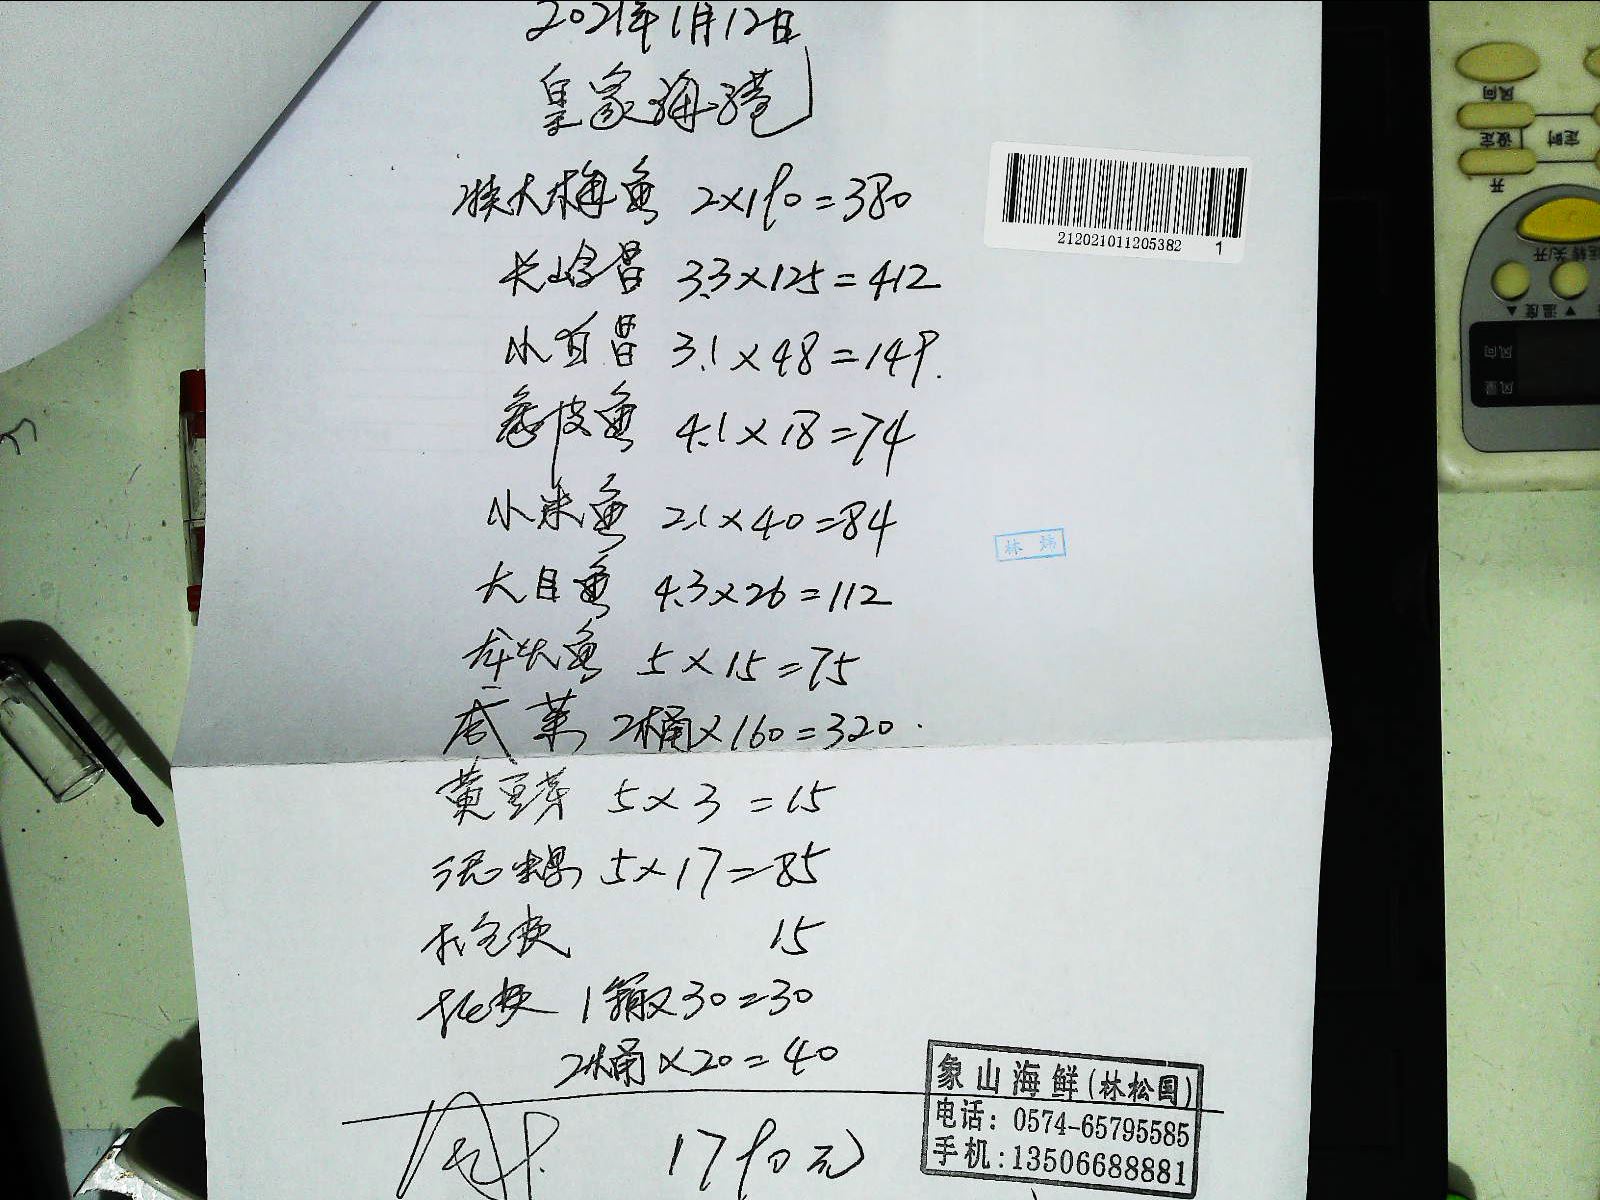 2021年1月12日
皇家海港
212021011205382 1
大梅鱼 2×190=380
长 昌 3.3×125=412
小 昌 3.1×48=149.
皮鱼 4.1×18=74
小米鱼 2.1×40=84
林 炜
大目鱼 4.3×26=112
龙头鱼 5×15=75
菜 2桶×160=320
黄豆芽 5×3=15
泥螺 5×17=85
15
1箱×30=30
2桶×20=40
1790元
象山海鲜(林松国)
电话: 0574-65795585
手机:13506688881
风向
设定
定时
开
运转关/开
▲ 温度 ▼
风向
风量